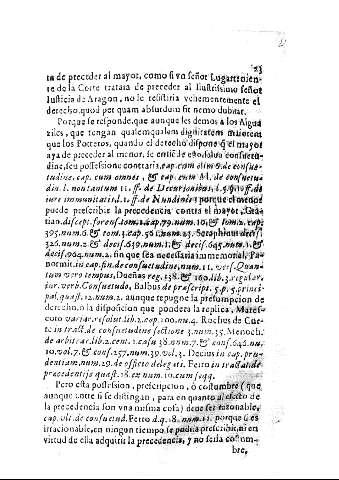 23
ta de preceder al mayor, como si vn señor Lugartenien-
te de la Corte tratara de preceder al Ilustrissimo señor
Iusticia de Aragon, no le resistiria vehementemente el
derecho, quod per quam absurdum sit nemo dubitat.
Porque se responde, que aunque les demos a los Algua
ziles, que tengan qualemqualem dignitatem mayorem
que los Porteros, quando el derecho dispone que el mayor
aya de preceder al menor, se entiende
dine, seu possessione contraria, cap. cum olim 9. de consue-
tudine. cap. cum omnes, & cap. cum M. de consuetudi
din. l. nontantum 11. ff. de Decurionibus, l. 5.
iure immunitatis, l. 1. ff. de Nundinis: porque el menor
puede prescribir la precedencia contra el mayor, Gra-
tian. discept. forens. tom. 1. cap. 79. num. 10. & tom. 2. cap.
395. num. 6. & tom. 3. cap. 56. num. 23. Seraphinus decis.
326. num. 2. & decis. 619. num. 1. & decis. 645. num. 1. &
decis. 964. num. 2. sin que sea necessaria immemorial, Pa-
normit. in cap. fin. de consuetudine, num. 11. vers. Quan-
tum vero tempus, Dueñas reg. 138. & 160. lib. 3. regular.
iur. verb. Consuetudo, Balbus de præscript. 5. p. 5. princi-
pal. quæst. 12. num. 2. aunque repugne la presumpcion de
derecho, ò la disposicion que pondera la replica, Mares-
coto variar. resolut. lib. 2. cap. 100. nu. 4. Rochus de Cur-
te in tract. de consuetudine sectione 3. num. 35. Menoch.
de arbitrar. lib. 2. cent. 1. casu 38. num. 7. & cons. 646. nu.
10. vol. 7. & cons. 257. num. 39. vol. 3. Decius in cap. pru-
dentiam, num. 29. de officio delegati. Ferro in tractat. de
precedentijs quæst. 18. ex num. 10. cum seqq.
Pero esta possession, prescripcion, ò costumbre (que
aunque entre si se distingan, para en quanto al efecto de
la precedencia son vna misma cosa) deue ser razonable,
cap. vlt. de consuetud. Ferro d. q. 18. num. 12. porque si es
irracionable, en ningun tiempo se podria prescribir, ni en
virtud de ella adquirir la precedencia, y no seria costum-
bre,